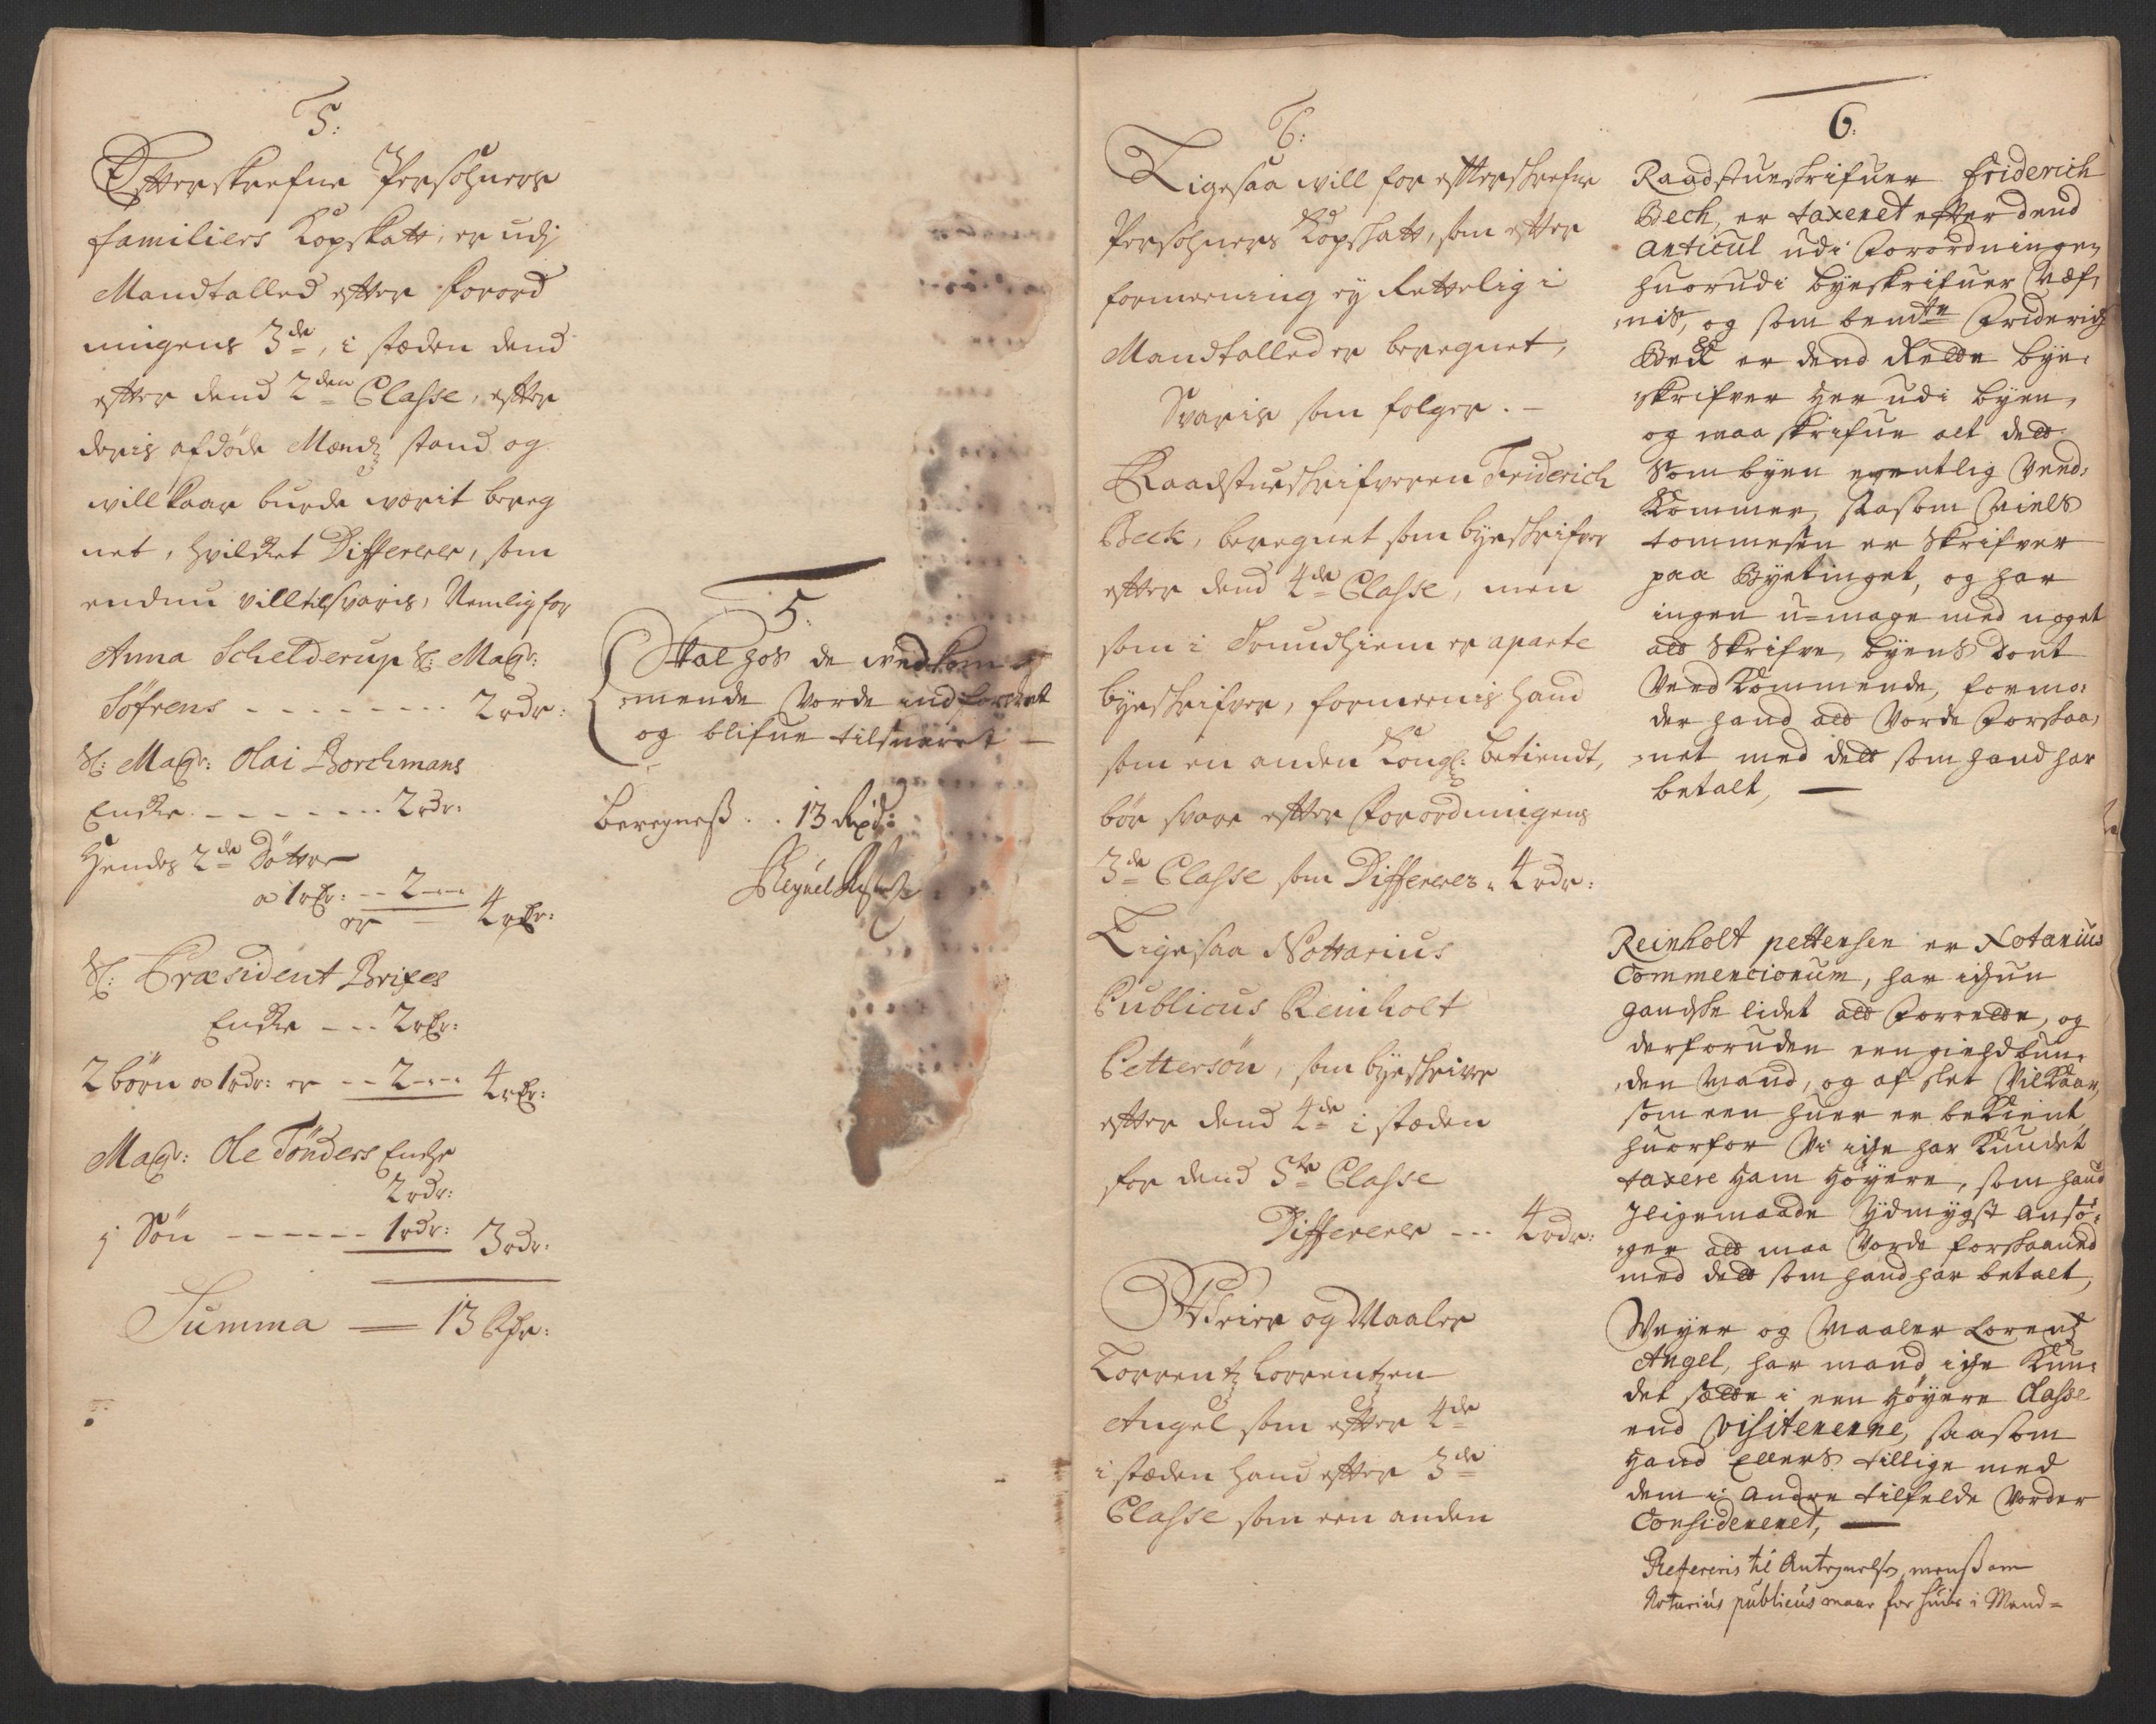 5:
Efterskrefne Persohners
familiers Kopskatt, er udj
Mandtalled efter Forord
ningens 3de, i stæden dend
efter dend 2den Classe, efter
deris afdøde Mændz stand og
willkaar burde wærit bereg
net, hvilcket Differerer, som
endnu vill tilsvaris, Nemlig for
Anna Schelderup Sl: Magr:
Söfrens - - - - - - - - 2 rdr:
Sl: Magr: Olai Borchmans
Encke. - - - - - - - 2 rdr:
Hendes 2de Döttre
a 1 rdr: - - 2 - - -
er 4 rdr:
Sl: Præsident Brixes
Encke - - - 2 rdr:
2 börn a 1 rdr: er - - 2 - - - 4 rdr:
Magr: Ole Tönders Encke
2 rdr:
j Sön - - - - - - 1 rdr: 3 rdr:
Summa — 13 Rdr:
5:
Skal hos de wedkom
mende Vorde indfordret
og blifue tilsuaret —
beregness . . 13 Rixd:
6:
Ligesaa will for efterskrefne
Persohners Kopskatt, som efter
formeening ej Rettelig i
Mandtalled er beregnet,
Svaris som følger. –
Raadstueskrifveren Friderich
Beck, beregnet som byeskrifver
efter dend 4de Classe, men
som i Trundhiem er aparte
byeskrifver, formeenis hand
som en anden Kongl: betiendt,
bör svare efter Forordningens
3de Classe som Differerer 4 rdr:
Ligesaa Nottarius
Publicus Reinholt
Pettersön, som byeskriver
efter dend 4de i stæden
for dend 3de Classe
Differerer - - - 4 rdr:
Veier og Maaler
Lorrentz Lorrentzen
Angel som efter 4de
i stæden hand efter 3de
Classe som een anden
6:
Raadstueskrifuer friderich
Bech, er taxeret efter dend
Articul udi Forordningen,
huorudi byeskrifuer næf,
nis, og som bemte Friderich
Beck er dend Rette bye,
skrifver her udi byen,
og maa skrifue alt dett
Som byen egentlig Ved,
Kommer, saasom Niels
tommesen er Skrifver
paa Byetinget, og har
ingen u=mage med noget
att Skrifve, byens dont
Ved Kommende, formo,
der hand att Vorde Forskaa,
net med dett som hand har
betalt, —
Reinholt pettersen er Notarius
Commerciorum, har ichun
gandske lidet att Forrette, og
derforuden een gieldbun,
den mand, og af slet Vilkaar,
som een huer er bekient,
huorfor Vi iche har Kundet
taxere ham höyere, som hand
jligemaade ydmygst ansö,
ger att maa Vorde forskaaned
med dett som hand har betalt,
Weyer og Maaler Lorentz
Angel, har mand iche Kun,
det sætte i een höyere Classe
end Visitererne, saasom
hand Ellers tillige med
dem i andre tilfelde Vorder
Considereret, —
Refereris til Antegnelse, menss om
Notarius publicus maae for huis i Mand=